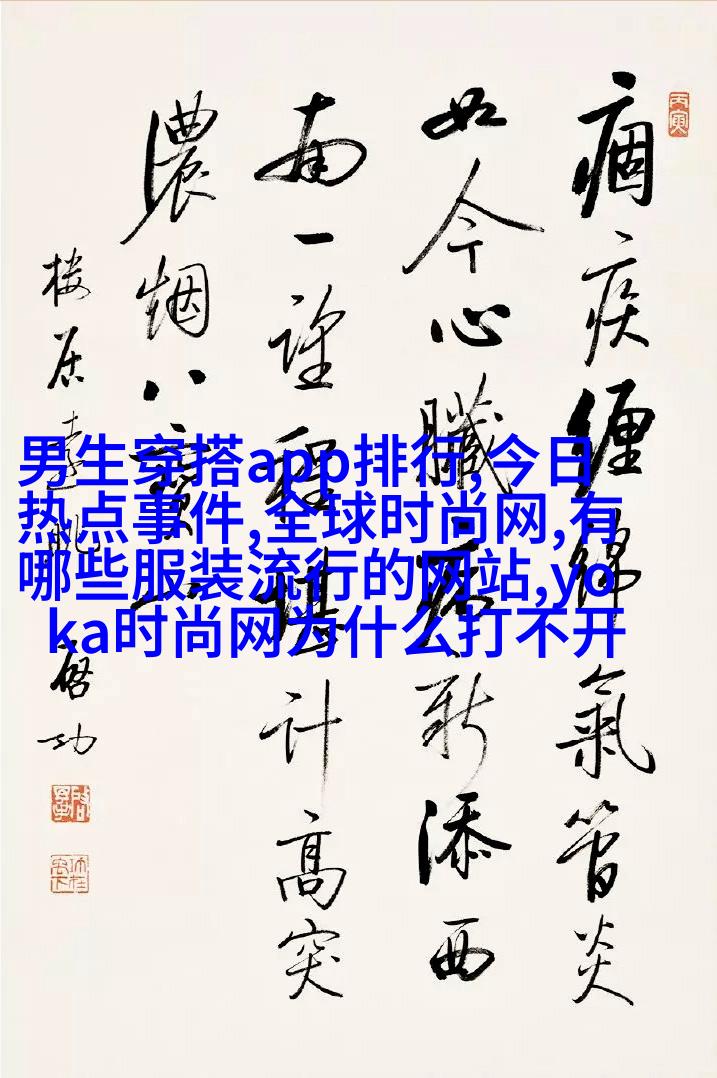 痼疾缠綿氣管炎
如今心臟病新添西
南一望程堪計高突
濃烟八寶山
楼居遠眺 啓功
丙寅
男生穿搭app排行,今日
热点事件,全球时尚网,有
哪些服装流行的网站,yo
ka时尚网为什么打不开